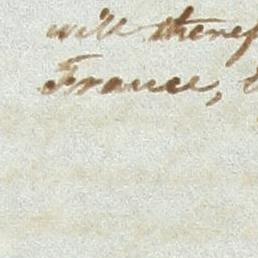 will theref
France,